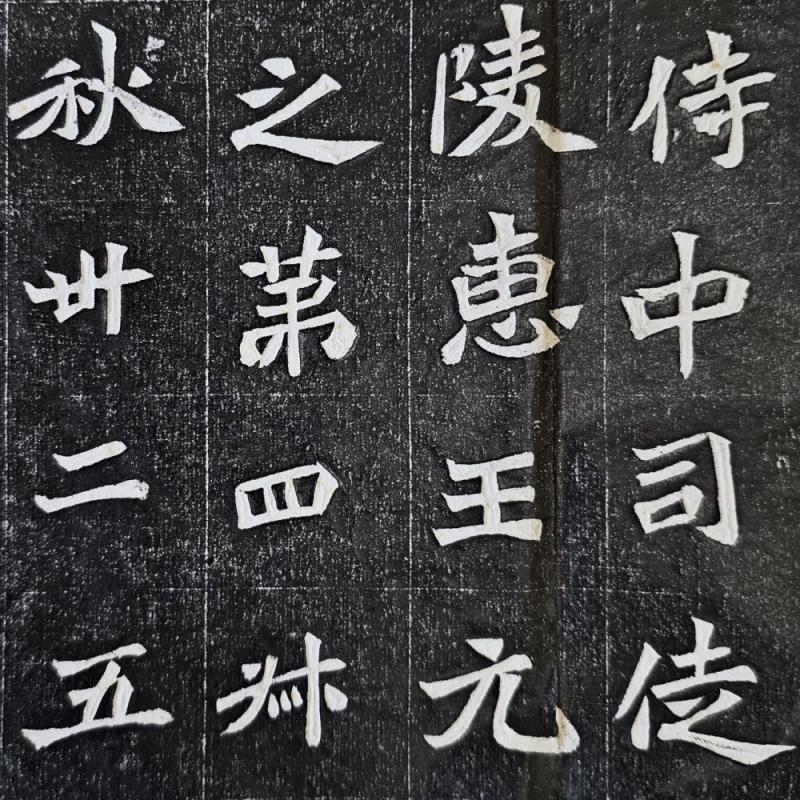 侍中司徒
陵惠王元
之苐四
秋卅二五